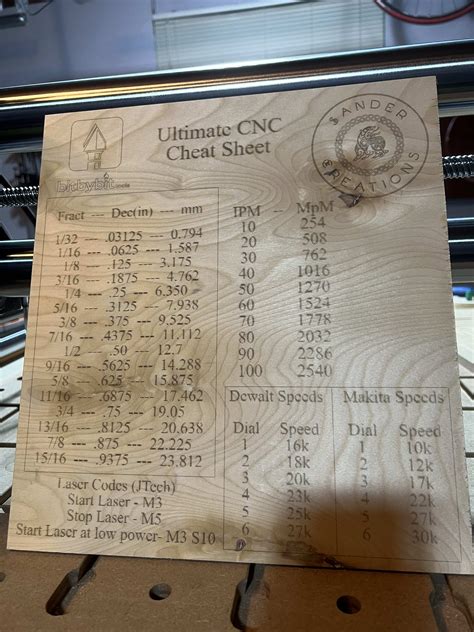 Ultimate CNC
Cheat Sheet
SANDER
CREATIONS
bitbybit.tools
Fract --- Dec(in) --- mm
1/32 --- .03125 --- 0.794
1/16 --- .0625 --- 1.587
1/8 --- .125 --- 3.175
3/16 --- .1875 --- 4.762
1/4 --- .25 --- 6.350
5/16 --- .3125 --- 7.938
3/8 --- .375 --- 9.525
7/16 --- .4375 --- 11.112
1/2 --- .50 --- 12.7
9/16 --- .5625 --- 14.288
5/8 --- .625 --- 15.875
11/16 --- .6875 --- 17.462
3/4 --- .75 --- 19.05
13/16 --- .8125 --- 20.638
7/8 --- .875 --- 22.225
15/16 --- .9375 --- 23.812
IPM -- MpM
10 254
20 508
30 762
40 1016
50 1270
60 1524
70 1778
80 2032
90 2286
100 2540
Dewalt Speeds
Dial Speed
1 16k
2 18k
3 20k
4 23k
5 25k
6 27k
Makita Speeds
Dial Speed
1 10k
2 12k
3 17k
4 22k
5 27k
6 30k
Laser Codes (JTech)
Start Laser - M3
Stop Laser - M5
Start Laser at low power- M3 S10